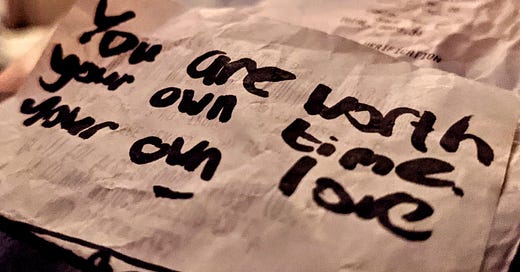 You are worth
your own time,
your own love
VERIFICATION